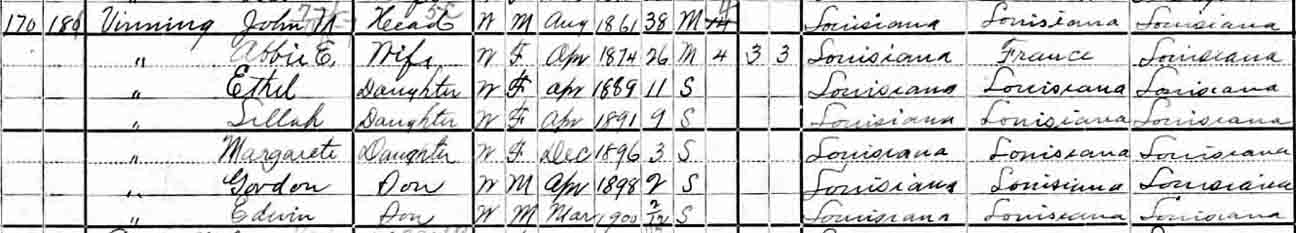 170 186 Vinning John Head W M Aug 1861 38 M Louisiana Louisiana Louisiana
" Abbie E. Wife W F Apr 1874 26 M 4 3 3 Louisiana France Louisiana
" Ethel Daughter W F Apr 1889 11 S Louisiana Louisiana Louisiana
" Lillah Daughter W F Apr 1891 9 S Louisiana Louisiana Louisiana
" Margarete Daughter W F Dec 1896 3 S Louisiana Louisiana Louisiana
" Gordon Son W M Apr 1898 2 S Louisiana Louisiana Louisiana
" Edwin Son W M Mar 1900 2/12 S Louisiana Louisiana Louisiana